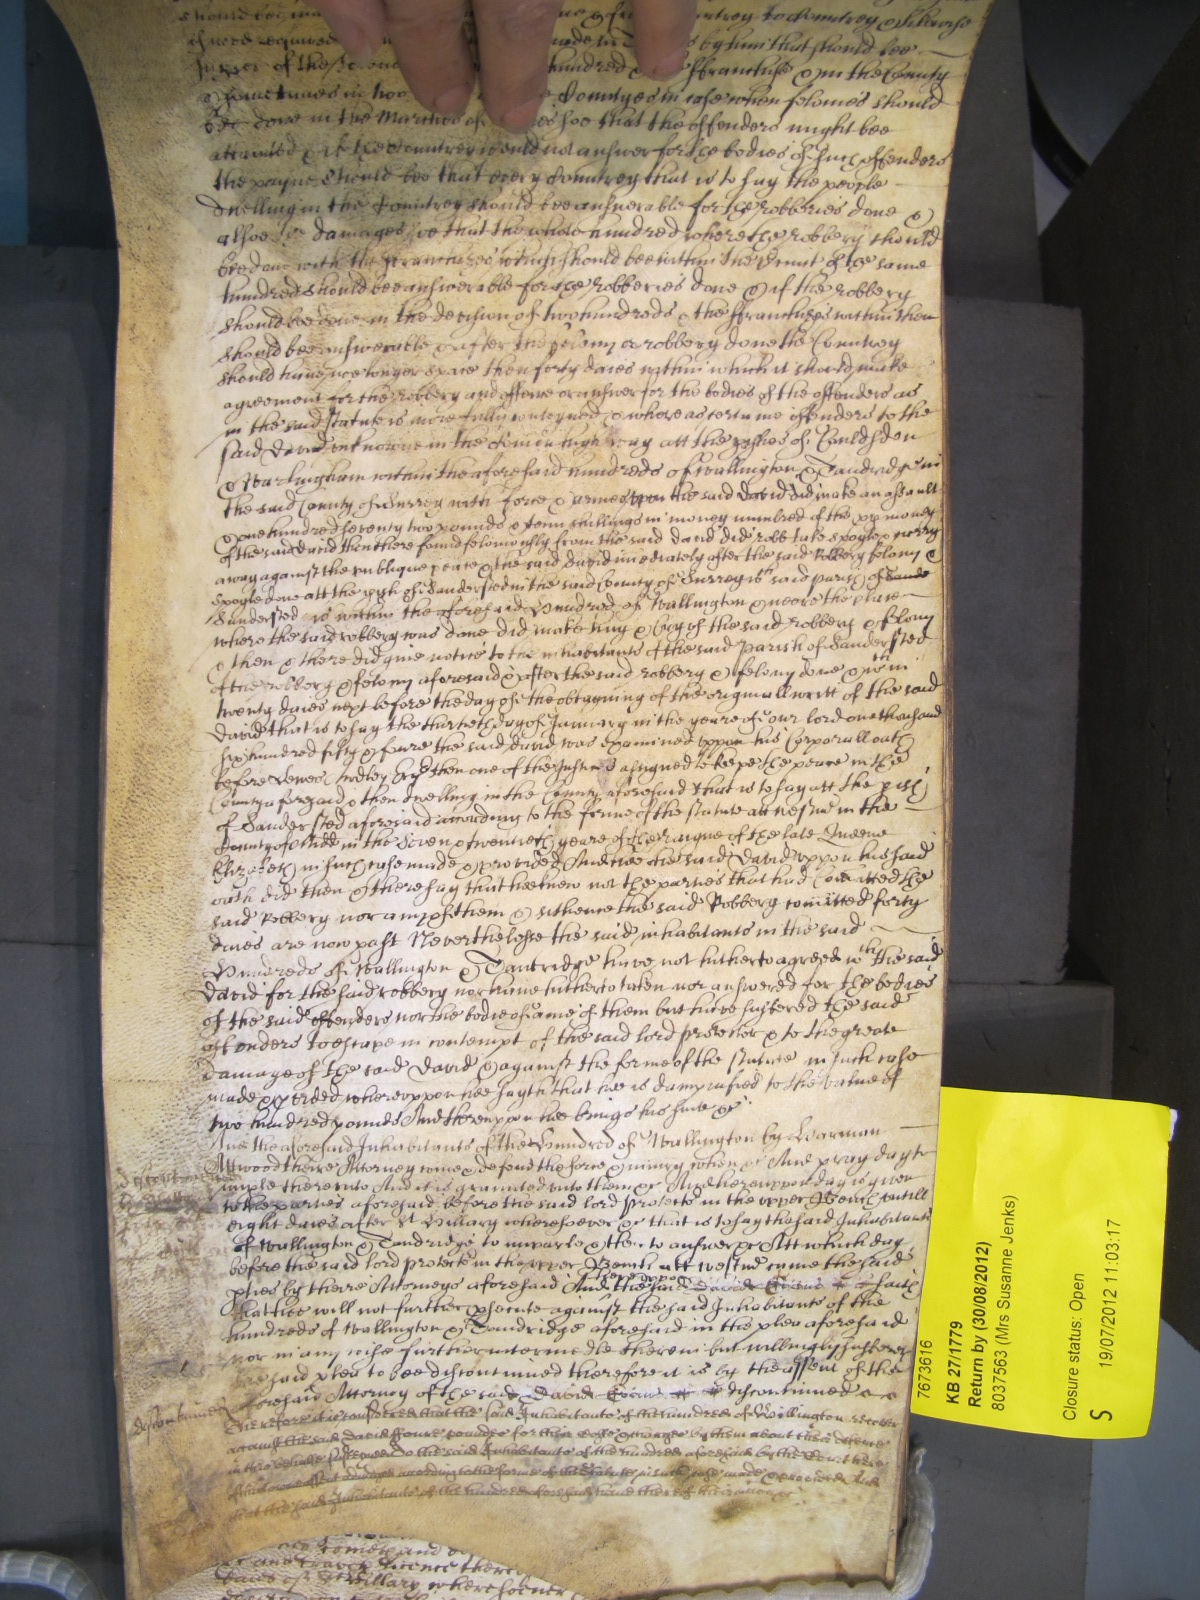 should bee
that should bee
hundred & ffranchise & in the County
Countyes in case when felonies should
bee done in the Marches of soe that the offenders might bee
attainted & if the Countrey would not answer for the bodies of such offenders
the payne should bee that every Countrey that is to say the people
dwelling in the Countrey should bee answerable for the robberies done &
alsoe the damages soe that the whole hundred where the robbery should
bee done with the ffranchises which should bee within the precinct of the same
hundred should bee answerable for the robberies done & if the robbery
should bee done in the devision of two hundreds & the ffranchises within them
should bee answerable & after the felony or robbery done the Countrey
should have noe longer space then forty daies within which it should make
agreement for the robbery and offence or answer for the bodies of the offenders as
in the said statute is more fully conteyned & whereas certaine offenders to the
said David unknowne in the Comon high way att the pishes of Coulsdon
& Warlingham within the aforesaid hundreds of Wallington & Tandridge in
the said County of Surrey with force & armes uppon the said David did make an assault
& one hundred seventy two pounds & tenn shillings in money numbred of the pp money
of the said david then there found feloniously from the said david did robb take spoyle & carry
away against the publique peace & the said David imediately after the said Robbery felony &
spoyle done att the pish of Sandersted in the said County of Surrey wch said parish of Sande
Sandersted is within the aforesaid hundred of Wallington & neere the place
where the said robbery was done did make huy & cry of the said robbery & felony
& then & there did give notice to the inhabitants of the said Parish of Sandersted
of the robbery & felony aforesaid & after the said robbery & felony done & wth in
twenty daies next before the day of the obtayning of the originall writt of the said
David that is to say the thirtieth day of January in the yeare of our lord one thousand
six hundred fifty & foure the said David was examined uppon his Corporall oath
before Lewes Audley Esqr then one of the Justices assigned to keepe the peace in the
County aforesaid & then dwelling in the County aforesaid that is to say att the pish
of Sandersted aforesaid according to the forme of the statute att westmr in the
County of Midd in the seven & twentieth yeare of the raigne of the late Queene
Elizabeth in such case made & provided And hee the said David uppon his said
oath did then & there say that hee knew not the parties that had comitted the
said Robbery nor any of them & sithence the said Robbery comitted forty
daies are now past Neverthelesse the said inhabitants in the said
hundreds of Wallington & Tanridge have not hitherto agreed wth the said
David for the said robbery nor have hitherto taken nor answered for the bodies
of the said offenders nor the bodie of anie of them but have suffered the said
offenders to escape in contempt of the said lord protector & to the greate
damage of the said David & against the forme of the statute in such case
made & pvided whereuppon hee sayth that hee is dampnified to the value of
two hundred pounds And thereuppon hee brings his suite &c
And the aforesaid Inhabitants of the hundred of Wallington by Harman
Attwood theire Attorney come & defend the force & iniury when &c And pray day to
imple thereunto And it is graunted unto them &c And hereuppon day is given
to the parties aforesaid before the said lord protector in the upper Bench untill
eight daies after St Hillary wheresoever &c that is to say the said Inhabitants
of Wallington & Tandridge to imparle & then to answer &c Att which day
before the said lord protector in the upper Bench att westmr came the said
pties by theire Attorneys aforesaid And thereuppon the said David Evans saith
that hee will not further psecute against the said Inhabitants of the
hundreds of Wallington & Tandridge aforesaid in the plea aforesaid
nor in any wise further intermedle therein but willingly suffereth
said plea to bee discontinued therefore it is by the assent of the
aforesaid Attorney of the said David Evans discontinued
discontinued
Therefore it is considered that the said Inhabitants of the hundred of Wallington recover
against the said David foure pounds for their costs & charges by them about their defence
in this behalfe susteyned to the said Inhabitants of the hundred aforesaid by the Court here
of their owne assent adiudged according to the forme of the statute in such case made & provided And
that the said Inhabitants of the hundred aforesaid have thereof the execution &c
daies of St Hillary wheresoever
7673616
KB 27/1779
Return by (30/08/2012)
8037563 (Mrs Susanne Jenks)
Closure status: Open
S 19/07/2012 11:03:17